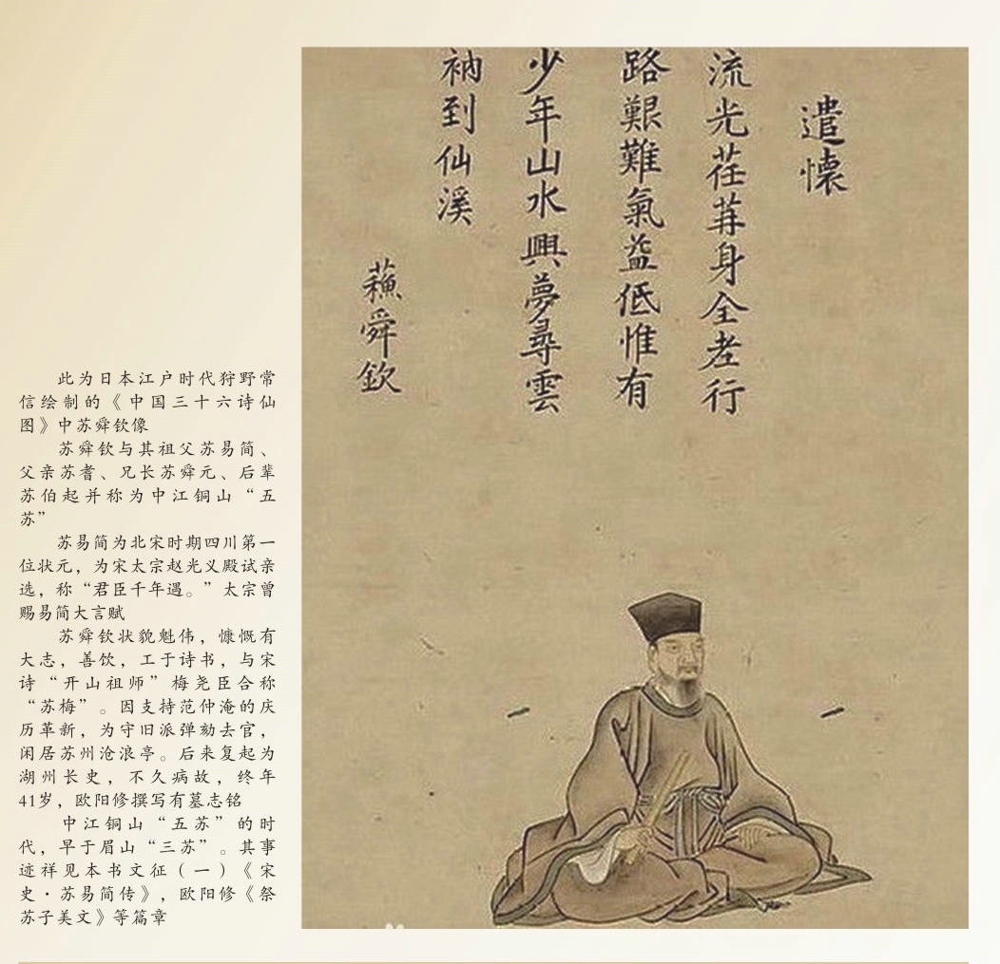 遣懷
流光荏苒身全老行
路艱難氣益低惟有
少年山水興夢尋雲
衲到仙溪
蘓舜欽
此为日本江户时代狩野常
信绘制的《中国三十六诗仙
图》中苏舜钦像
苏舜钦与其祖父苏易简、
父亲苏耆、兄长苏舜元、后辈
苏伯起并称为中江铜山“五
苏”
苏易简为北宋时期四川第一
位状元，为宋太宗赵光义殿试亲
选，称“君臣千年遇。”太宗曾
赐易简大言赋
苏舜钦状貌魁伟，慷慨有
大志，善饮，工于诗书，与宋
诗“开山祖师”梅尧臣合称
“苏梅”。因支持范仲淹的庆
历革新，为守旧派弹劾去官，
闲居苏州沧浪亭。后来复起为
湖州长史，不久病故，终年
41岁，欧阳修撰写有墓志铭
中江铜山“五苏”的时
代，早于眉山“三苏”。其事
迹祥见本书文征（一）《宋
史·苏易简传》，欧阳修《祭
苏子美文》等篇章